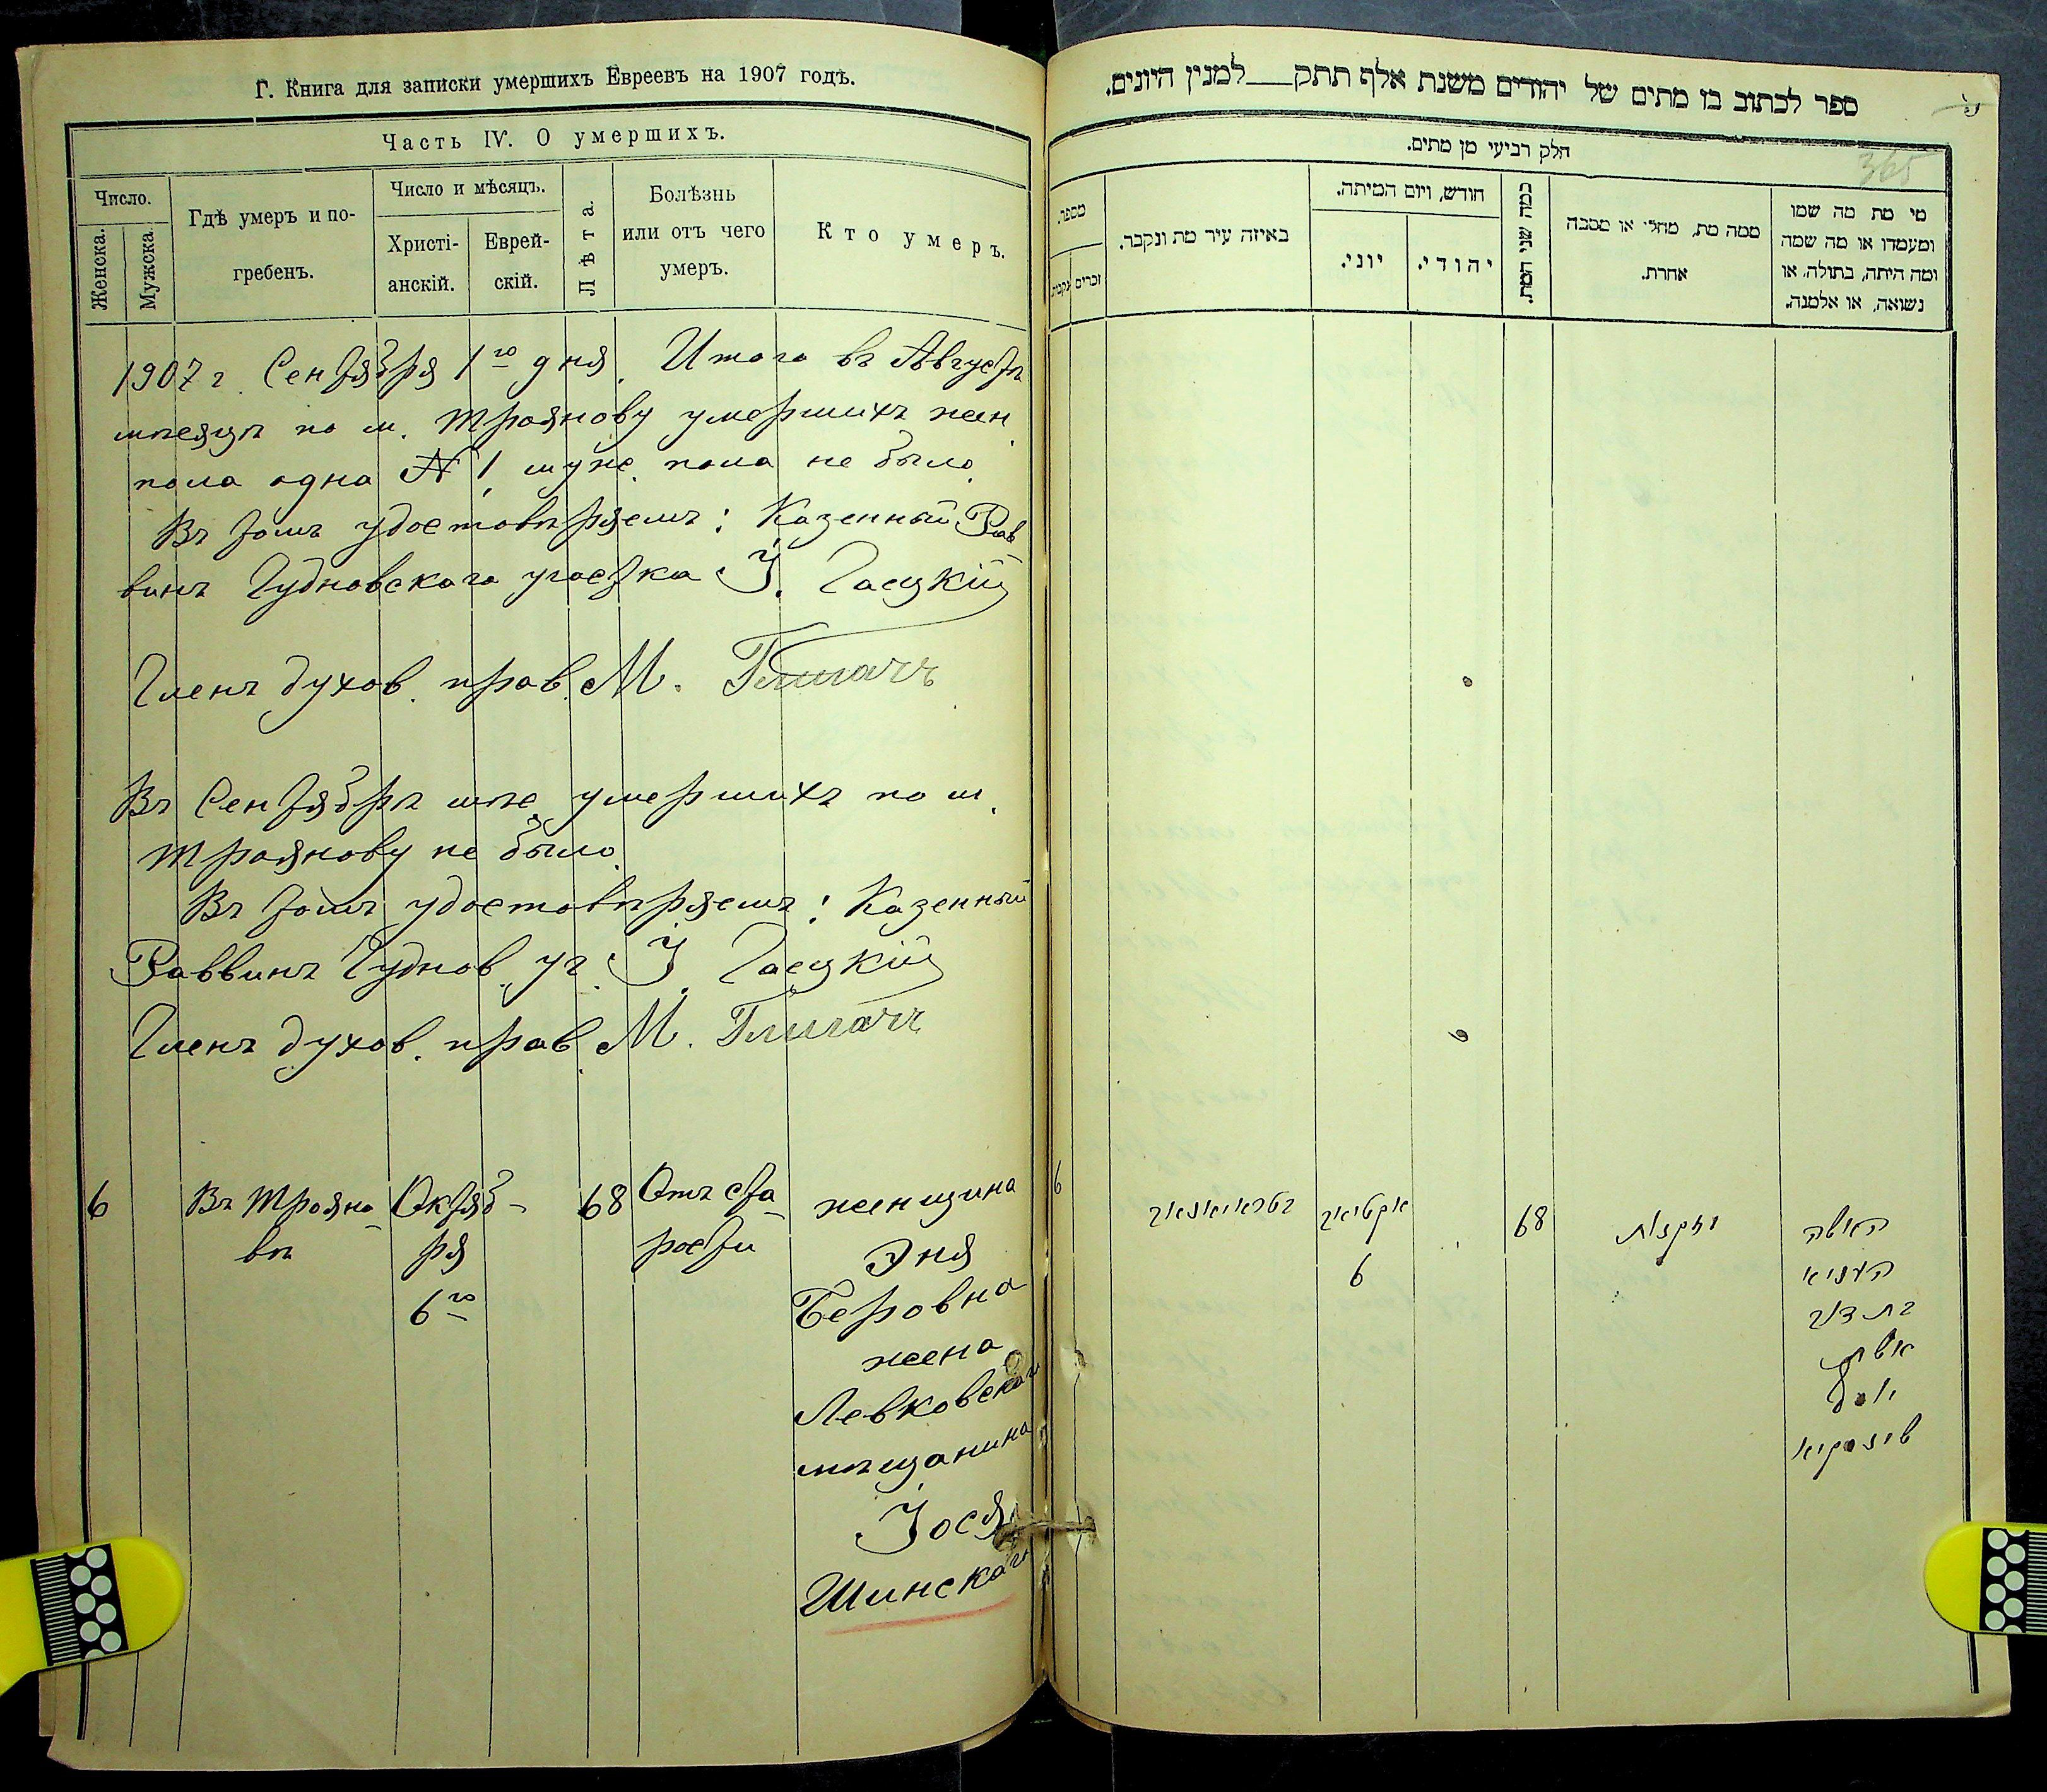 Г. Книга для записки умершихъ Евреевъ на 1907 годъ.
Часть IV. О умершихъ.
Число.
Женска.
Мужска.
Гдѣ умеръ и по-
гребенъ.
Число и мѣсяцъ.
Христі-
анскій.
Еврей-
скій.
Лѣта.
Болѣзнь
или отъ чего
умеръ.
Кто умеръ.
1907 г. Сентября 1го дня. Итого въ Августѣ
мѣсяцѣ по м. Троянову умершихъ жен.
пола одна № 1, муж. пола не было.
Въ томъ удостовѣряемъ: Казенный Рав
винъ Чудновскаго участка І. Гаецкій
Членъ духов. прав. М.
Въ Сентябрѣ мѣс. умершихъ по м.
Троянову не было.
Въ томъ удостовѣряемъ: Казенный
Раввинъ Чуднов. уч. І. Гаецкій
Членъ духов. прав. М.
6
Въ Трояно-
вѣ
Октяб-
ря
6го
68
Отъ ста-
рости
женщина
Эня
Беровна
жена
Левковскаго
мѣщанина
Іося
Шинскаго
ספר לכתוב בו מתים של יהודים משנת אלף תתק___למנין היונים.
365
חלק רביעי מן מתים.
מספר.
זכרים
נקבות
באיזה עיר מת ונקבר.
חודש, ויום המיתה.
יוני.
יהודי.
כמה שני המת.
ממה מת, מחלי או מסבה
אחרת.
מי מת מה שמו
ומעמדו או מה שמה
ומה היתה, בתולה, או
נשואה, או אלמנה.
6
בטראיאנאוו
אקטיאב
6
68
מזקנות
האשה
העניא
בת דוב
אשת
יוסף
שינסקיא